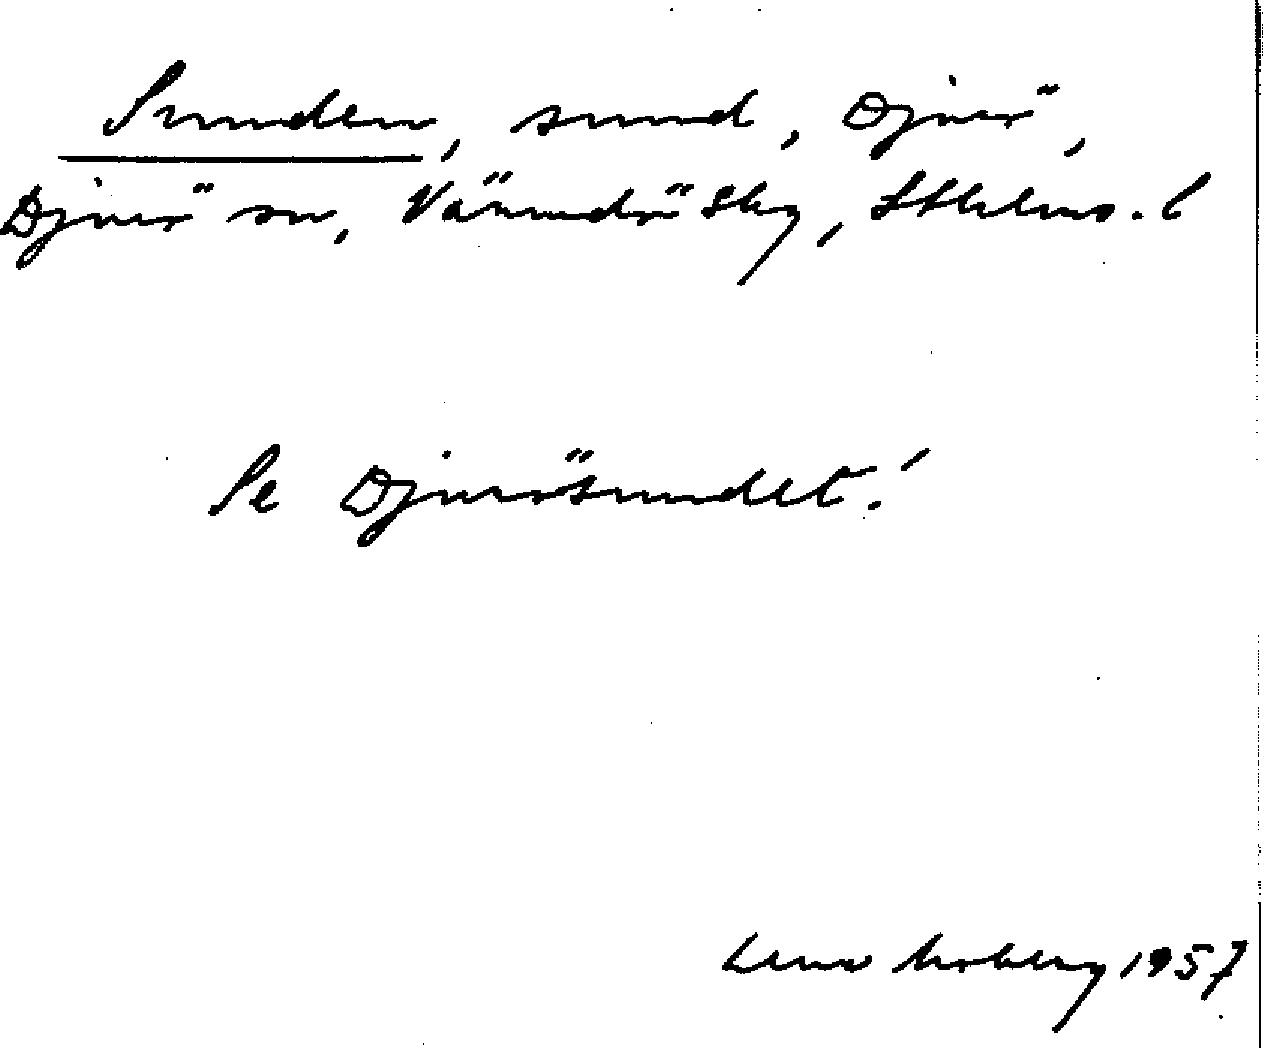 Sunden, sund, Djurö,
Djurö sn, Värmdö skg, Sthlms. l
Se Djurösundet!
Lena Moberg 1957